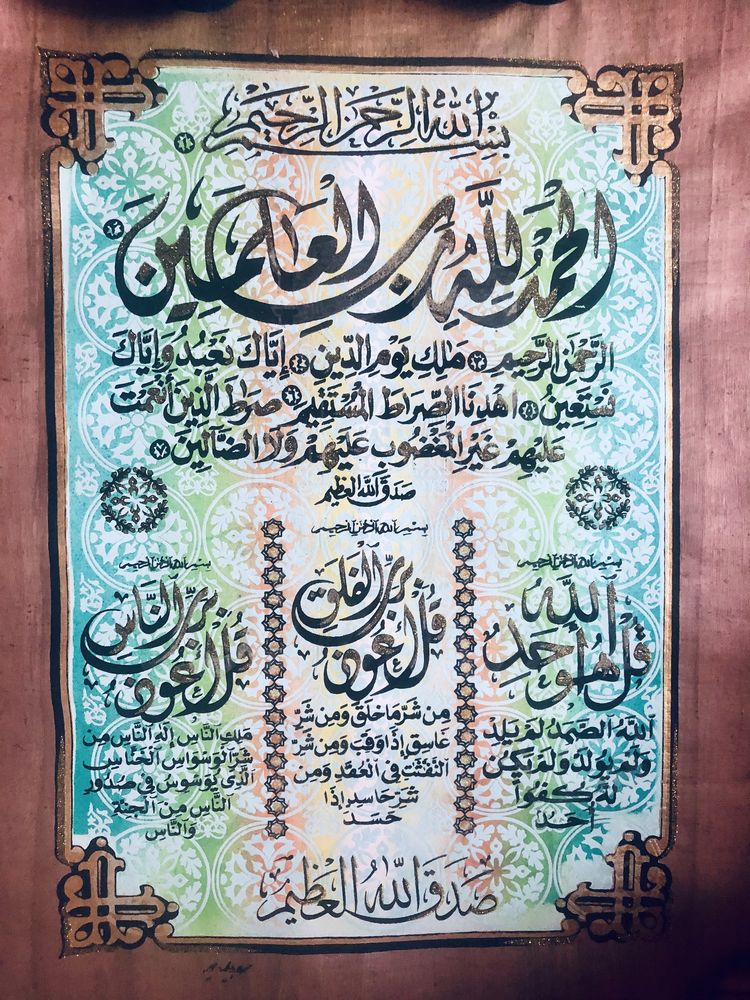 بِسْمِ اللَّهِ الرَّحْمٰنِ الرَّحِيمِ ١
الْحَمْدُ لِلَّهِ رَبِّ الْعٰلَمِينَ ٢
الرَّحْمٰنِ الرَّحِيمِ ٣ مٰلِكِ يَوْمِ الدِّينِ ٤ إِيَّاكَ نَعْبُدُ وَإِيَّاكَ
نَسْتَعِينُ ٥ اهْدِنَا الصِّرَاطَ الْمُسْتَقِيمَ ٦ صِرَاطَ الَّذِينَ أَنْعَمْتَ
عَلَيْهِمْ غَيْرِ الْمَغْضُوبِ عَلَيْهِمْ وَلَا الضَّالِّينَ ٧
صَدَقَ اللَّهُ الْعَظِيمُ
بسم الله الرحمن الرحيم
قُلْ هُوَ اللَّهُ أَحَدٌ
اللَّهُ الصَّمَدُ لَمْ يَلِدْ
وَلَمْ يُولَدْ وَلَمْ يَكُنْ
لَهُ كُفُوًا
أَحَدٌ
بسم الله الرحمن الرحيم
قُلْ أَعُوذُ بِرَبِّ الْفَلَقِ
مِنْ شَرِّ مَا خَلَقَ وَمِنْ شَرِّ
غَاسِقٍ إِذَا وَقَبَ وَمِنْ شَرِّ
النَّفّٰثٰتِ فِي الْعُقَدِ وَمِنْ
شَرِّ حَاسِدٍ إِذَا
حَسَدَ
بسم الله الرحمن الرحيم
قُلْ أَعُوذُ بِرَبِّ النَّاسِ
مَلِكِ النَّاسِ إِلٰهِ النَّاسِ مِنْ
شَرِّ الْوَسْوَاسِ الْخَنَّاسِ
الَّذِي يُوَسْوِسُ فِي صُدُورِ
النَّاسِ مِنَ الْجِنَّةِ
وَالنَّاسِ
صَدَقَ اللَّهُ الْعَظِيمُ